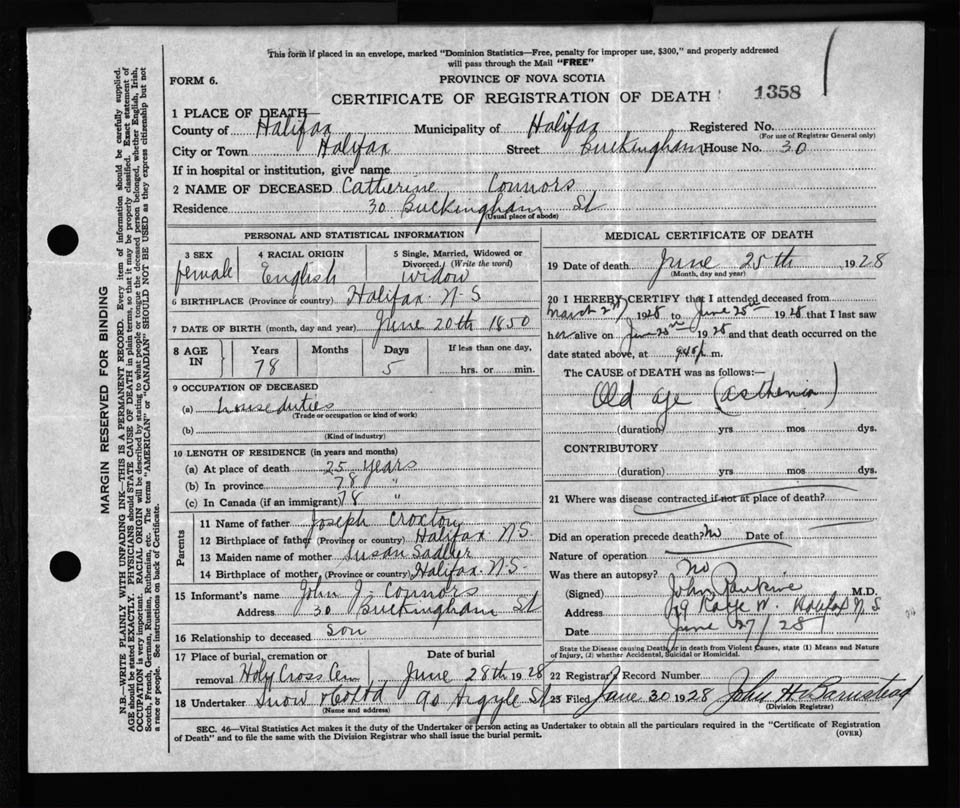 This form if placed in an envelope, marked "Dominion Statistics—Free, penalty for improper use, $300," and properly addressed
will pass through the Mail "FREE"
FORM 6.
PROVINCE OF NOVA SCOTIA
CERTIFICATE OF REGISTRATION OF DEATH 1358
1 PLACE OF DEATH
County of Halifax Municipality of Halifax Registered No.
(For use of Registrar General only)
City or Town Halifax Street Buckingham House No. 30
If in hospital or institution, give name
2 NAME OF DECEASED Catherine Connors
Residence 30 Buckingham St
(Usual place of abode)
PERSONAL AND STATISTICAL INFORMATION
3 SEX 4 RACIAL ORIGIN 5 Single, Married, Widowed or
Divorced. (Write the word)
female English widow
6 BIRTHPLACE (Province or country) Halifax N-S
7 DATE OF BIRTH (month, day and year) June 20th 1850
8 AGE IN Years Months Days If less than one day,
78 5 hrs. or min.
9 OCCUPATION OF DECEASED
(a) house duties
(Trade or occupation or kind of work)
(b)
(Kind of industry)
10 LENGTH OF RESIDENCE (in years and months)
(a) At place of death 25 years
(b) In province 78 "
(c) In Canada (if an immigrant) 78 "
Parents
11 Name of father Joseph Croxton
12 Birthplace of father (Province or country) Halifax N.S.
13 Maiden name of mother Susan Sadlier
14 Birthplace of mother (Province or country) Halifax N-S-
15 Informant's name John J. Connors
Address 30 Buckingham St
16 Relationship to deceased son
17 Place of burial, cremation or Date of burial
removal Holy Cross Cem June 28th 1928
18 Undertaker Snow & Co Ltd 90 Argyle St
(Name and address)
MEDICAL CERTIFICATE OF DEATH
19 Date of death June 25th 1928
(Month, day and year)
20 I HEREBY CERTIFY that I attended deceased from
March 1928 to June 25th 1928 that I last saw
her alive on June 25th 1928 and that death occurred on the
date stated above, at m.
The CAUSE OF DEATH was as follows:—
Old age (asthenia)
(duration) yrs mos dys.
CONTRIBUTORY
(duration) yrs mos dys.
21 Where was disease contracted if not at place of death?
Did an operation precede death? No Date of
Nature of operation
Was there an autopsy? No
(Signed) John Rankine M.D.
Address Kaye W. Halifax N S
Date June 27/28
State the Disease causing Death, or in death from Violent Causes, state (1) Means and Nature
of Injury, (2) whether Accidental, Suicidal or Homicidal.
22 Registrar's Record Number
25 Filed June 30 1928 John H Barnstead
(Division Registrar)
SEC. 46—Vital Statistics Act makes it the duty of the Undertaker or person acting as Undertaker to obtain all the particulars required in the "Certificate of Registration
of Death" and to file the same with the Division Registrar who shall issue the burial permit.
(OVER)
MARGIN RESERVED FOR BINDING
N.B.—WRITE PLAINLY WITH UNFADING INK—THIS IS A PERMANENT RECORD. Every item of information should be carefully supplied.
AGE should be stated EXACTLY. PHYSICIANS should STATE CAUSE OF DEATH in plain terms, so that it may be properly classified. Exact statement of
OCCUPATION is very important. RACIAL ORIGIN will be described by stating to what people or tongue the deceased person belonged, whether English, Irish,
Scotch, French, German, Russian, Ruthenian, etc. The terms "AMERICAN" or "CANADIAN" SHOULD NOT BE USED as they express citizenship but not
a race or people. See instructions on back of Certificate.